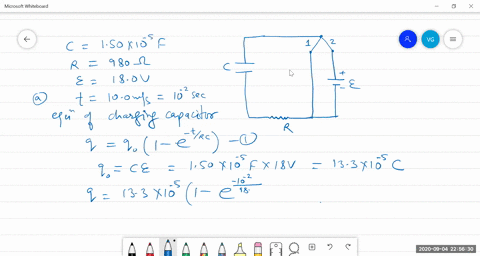 Microsoft Whiteboard
C = 1.50 × 10⁻⁵ F
R = 980 Ω
ε = 18.0 V
ⓐ t = 10.0 m/s = 10⁻² sec
eqⁿ of charging capacitor
q = q₀ (1 − e^(-t/RC) — ①
q₀ = Cε = 1.50 × 10⁻⁵ F × 18V = 13.3 × 10⁻⁵ C
q = 13.3 × 10⁻⁵ (1 − e^(-10⁻²/98
1 2
C
+
− ε
R
VG
2020-09-04 22:56:30